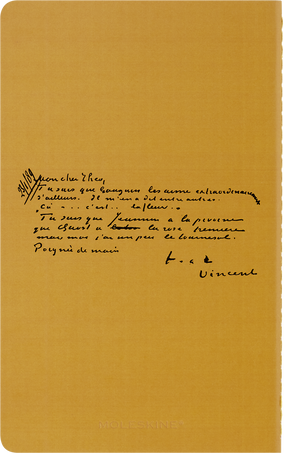 22/1/89
mon cher Theo,
Tu sais que Gauguin les aime extraordinairement
d'ailleurs. Il m'en a dit entre autres:
"çà - ... c'est... la fleur".
Tu sais que Jeannin a la pivoine
que Quost a la rose trémière
mais moi j'ai un peu le tournesol.
Poignée de main
t. à t.
Vincent
MOLESKINE